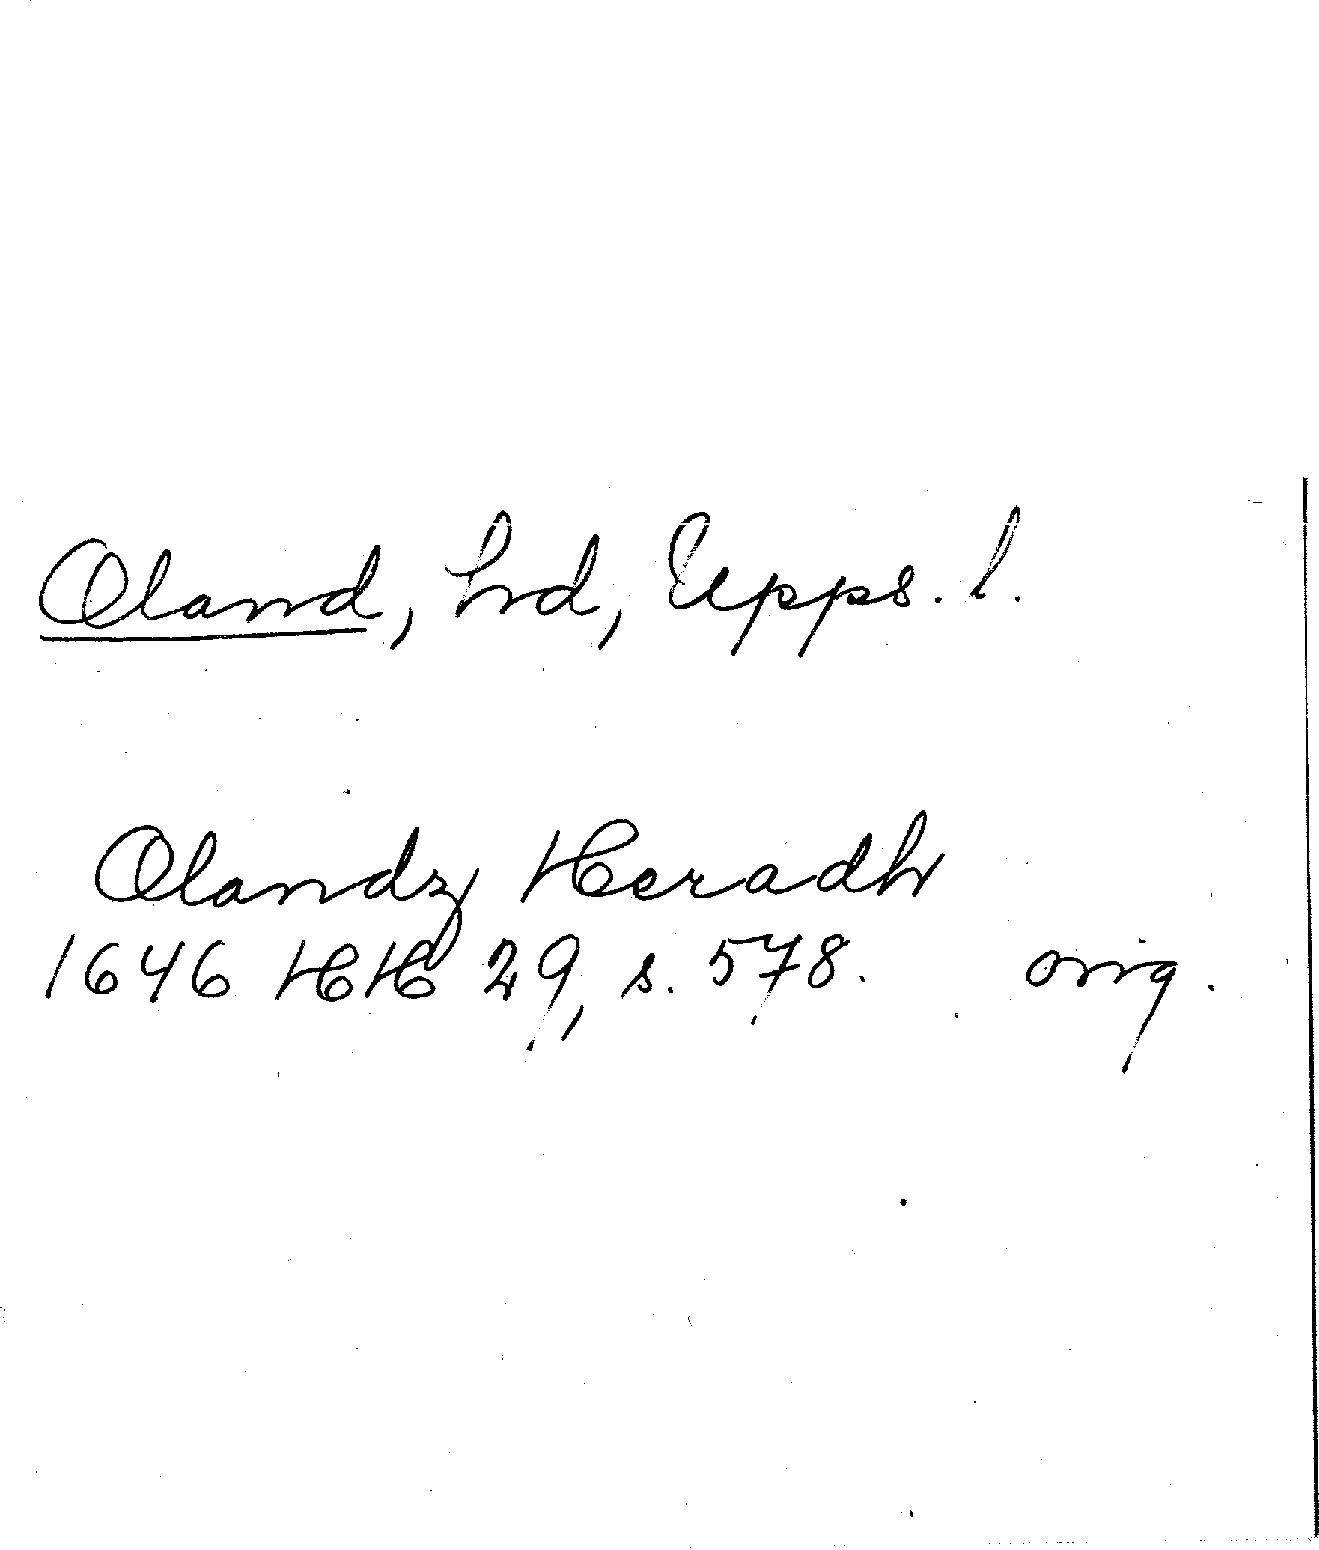 Oland, hrd, Upps. l.
Olandz Heradh
1646 HH 29, s. 578. orig.